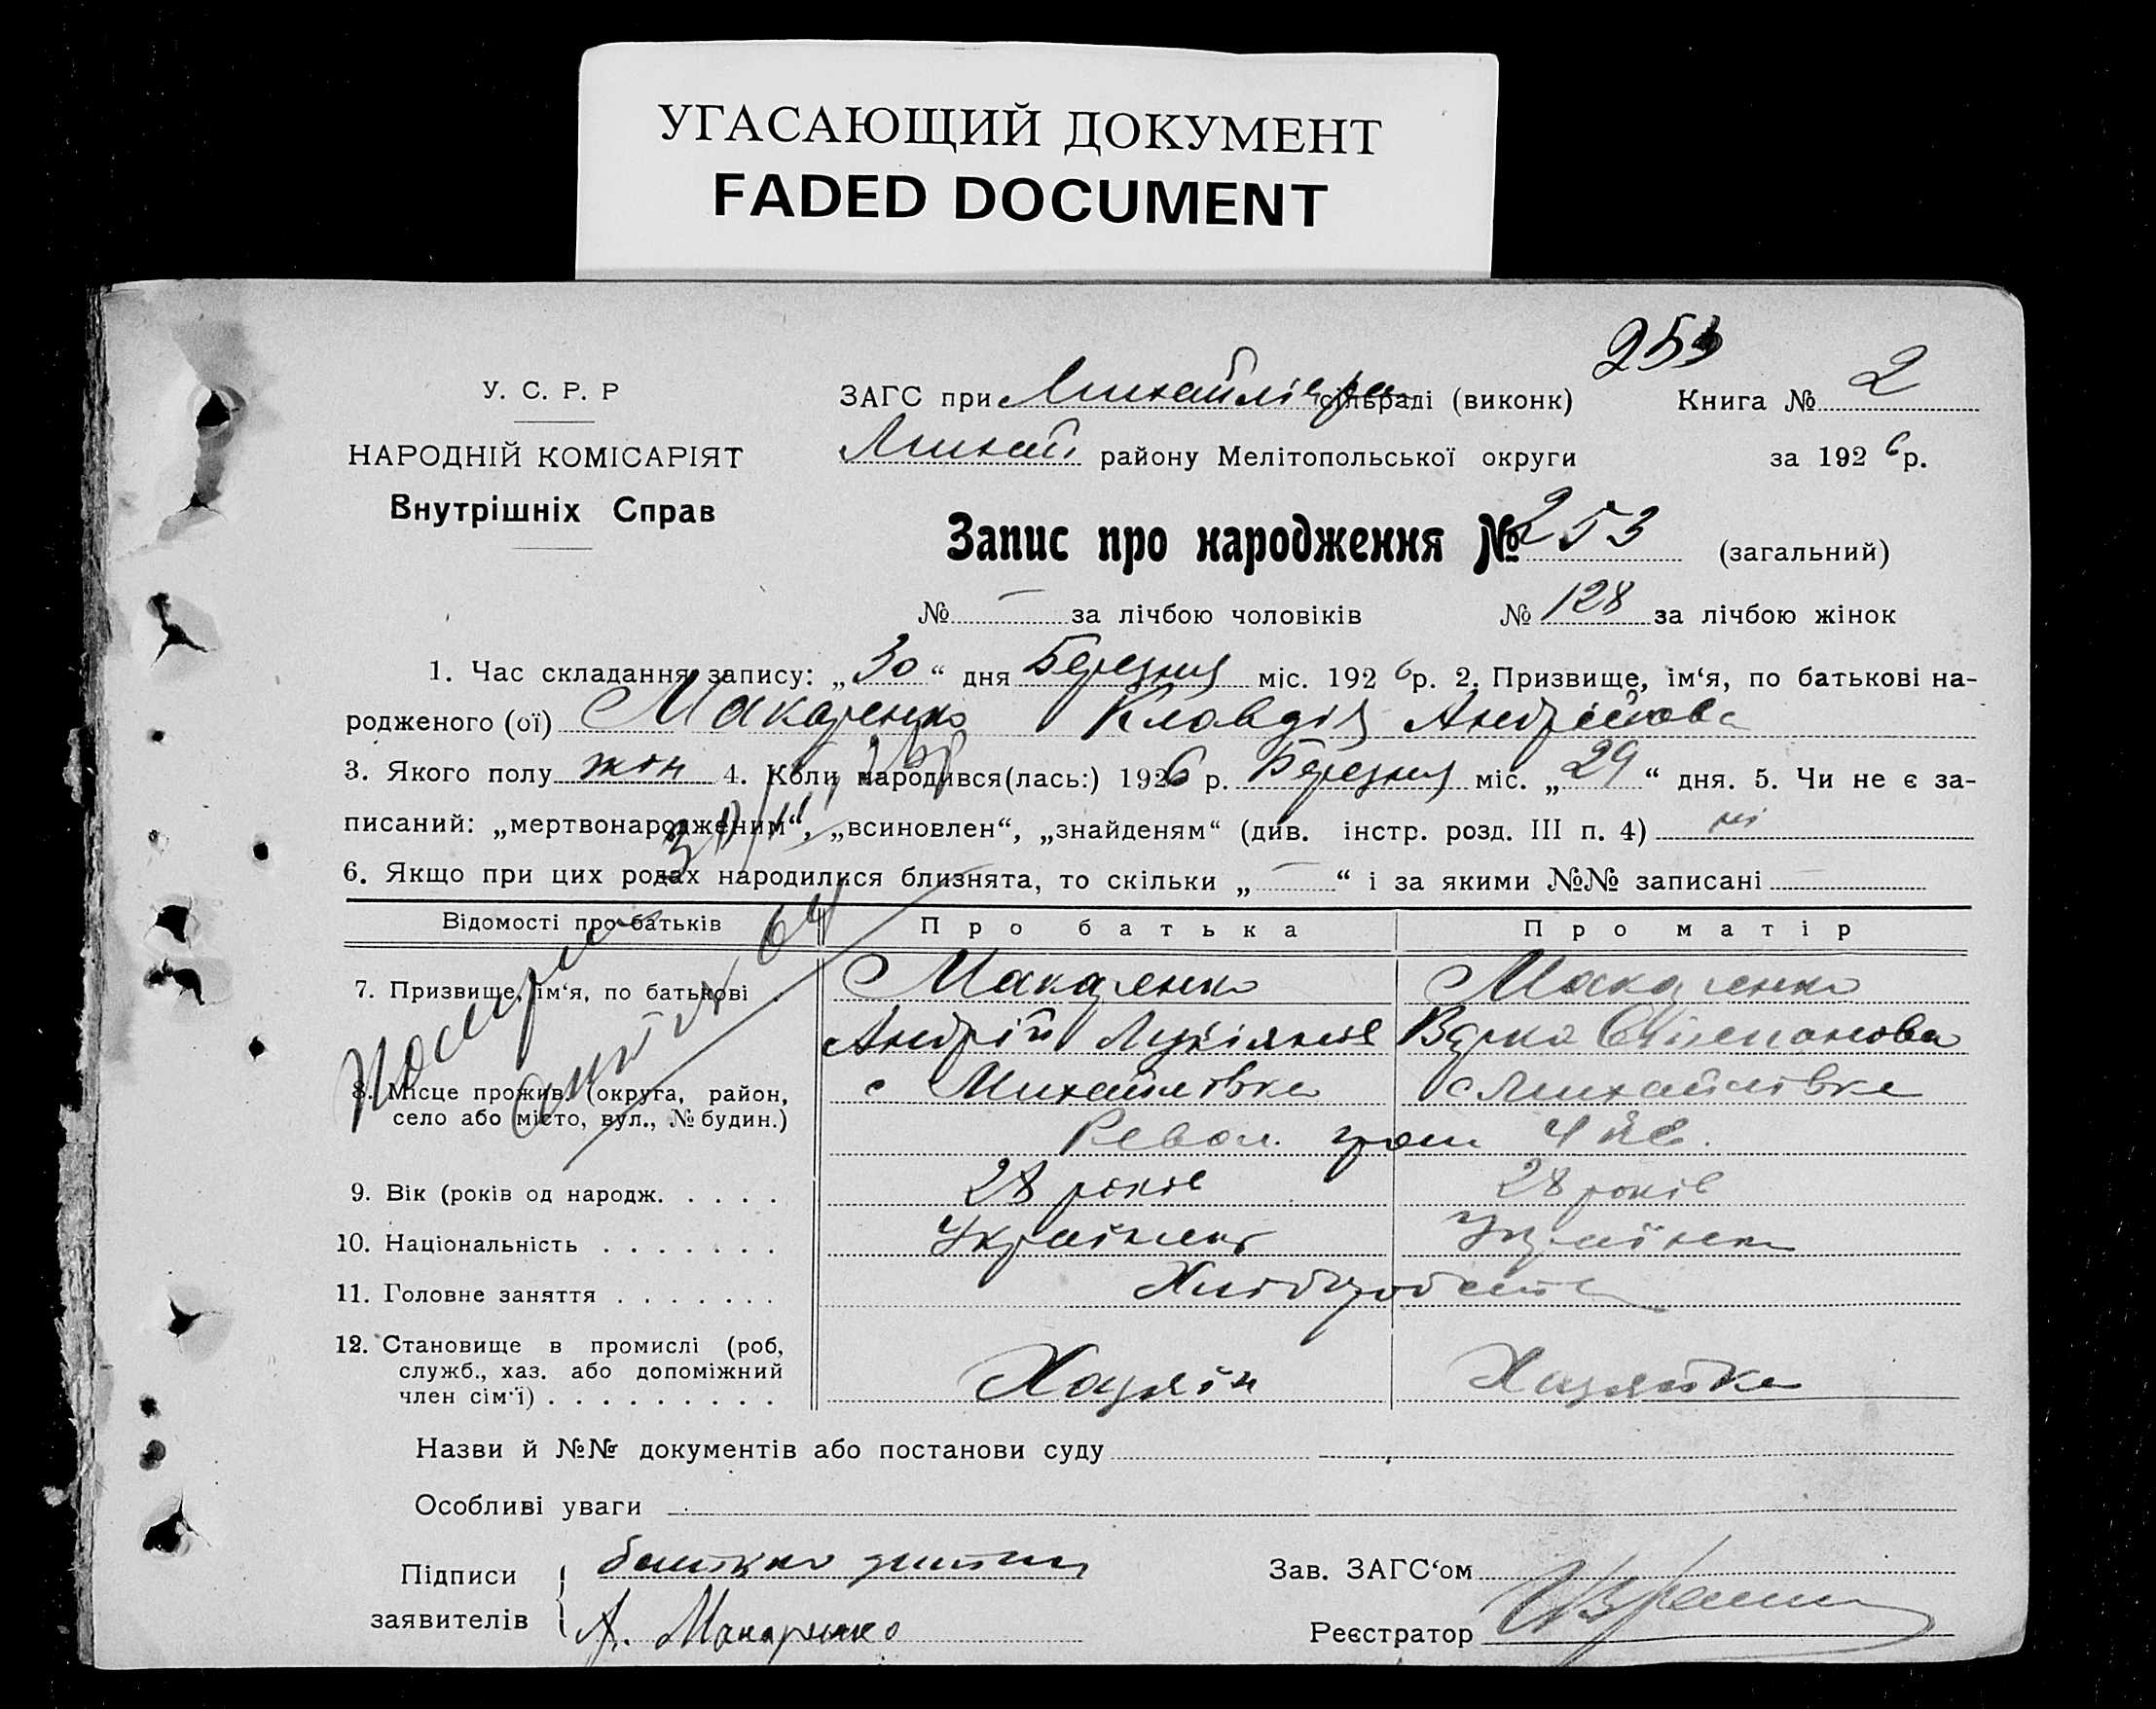 УГАСАЮЩИЙ ДОКУМЕНТ
FADED DOCUMENT
253
У. С. Р. Р
ЗАГС при Михайлів сільраді (виконк) Книга № 2
НАРОДНІЙ КОМІСАРІЯТ
Михай району Мелітопольської округи за 1926 р.
Внутрішніх Справ
Запис про народження № 253 (загальний)
№ — за лічбою чоловіків № 128 за лічбою жінок
1. Час складання запису: „30“ дня Березня міс. 1926 р. 2. Призвище, ім‘я, по батькові на-
родженого (ої) Макаренко Клавдія Андрійова
3. Якого полу жін 4. Коли народився(лась:) 1926 р. Березня міс. „29“ дня. 5. Чи не є за-
писаний: „мертвонародженим“, „всиновлен“, „знайденям“ (див. інстр. розд. III п. 4) ні
6. Якщо при цих родах народилися близнята, то скільки „—“ і за якими №№ записані —
Відомості про батьків Про батька Про матір
7. Призвище, ім‘я, по батькові . Макаренко Макаренко
Андрій Лукіянов Варка Степанова
8. Місце прожив. (округа, район, с Михайлівка с Михайлівка
село або місто, вул., № будин.)
Револ. 4
9. Вік (років од народж. . . . . 28 років 28 років
10. Національність . . . . . . . Українец Українка
11. Головне заняття . . . . . . . Хлібороб
12. Становище в промислі (роб,
служб., хаз. або допоміжний Хазяїн Хазяйка
член сім‘ї) . . . . . . . . .
Назви й №№ документів або постанови суду
Особливі уваги
Підписи батько дитини Зав. ЗАГС‘ом
заявителів А. Макаренко Реєстратор